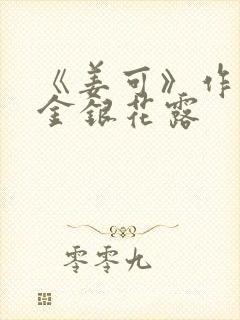 《姜可》作
金银花露
零零九